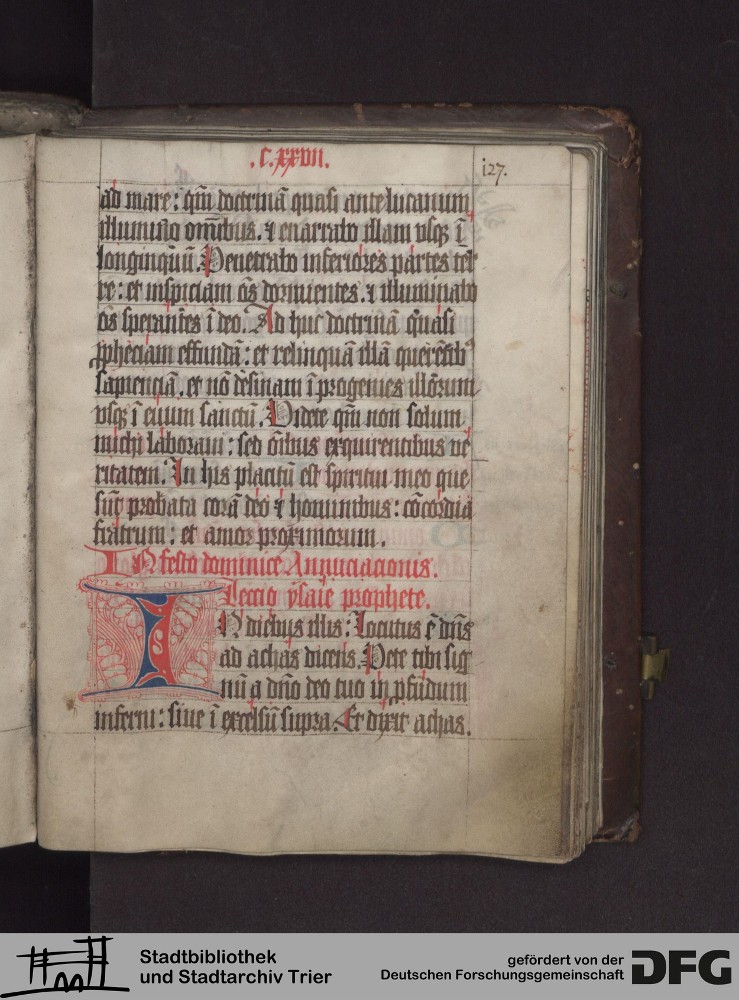 .C.xxvii.
i27.
ad mare: qm̄ doctrinā quasi antelucanum
illumino om̄ibus. ⁊ enarrabo illam vsqꝫ ī
longinquū. Penetrabo inferiores partes ter
re: et inspiciam oēs dormientes. ⁊ illuminabo
oēs sperantes ī deo. Ad huc doctrinā quasi
ꝓpheciam effundā: et relinquā illā querētibꝰ
sapienciā. et nō desinam ī progenies illorum
vsqꝫ ī euum sanctū. Videte qm̄ non solum
michi laboraui: sed oībus exquirentibus ve
ritatem. In his placitū est spiritui meo que
sūt probata corā deo ⁊ hominibus: cōcordia
fratrum: et amor proximorum.
IN festo dominice Annūciacionis.
Leccio ysaie prophete.
IN diebus illis: Locutus ē dn̄s
ad achas dicens. Pete tibi sig
nū a dn̄o deo tuo in ꝓfūdum
inferni: siue ī excelsū supra. Et dixit achas.
Stadtbibliothek
und Stadtarchiv Trier
gefördert von der
Deutschen Forschungsgemeinschaft
DFG